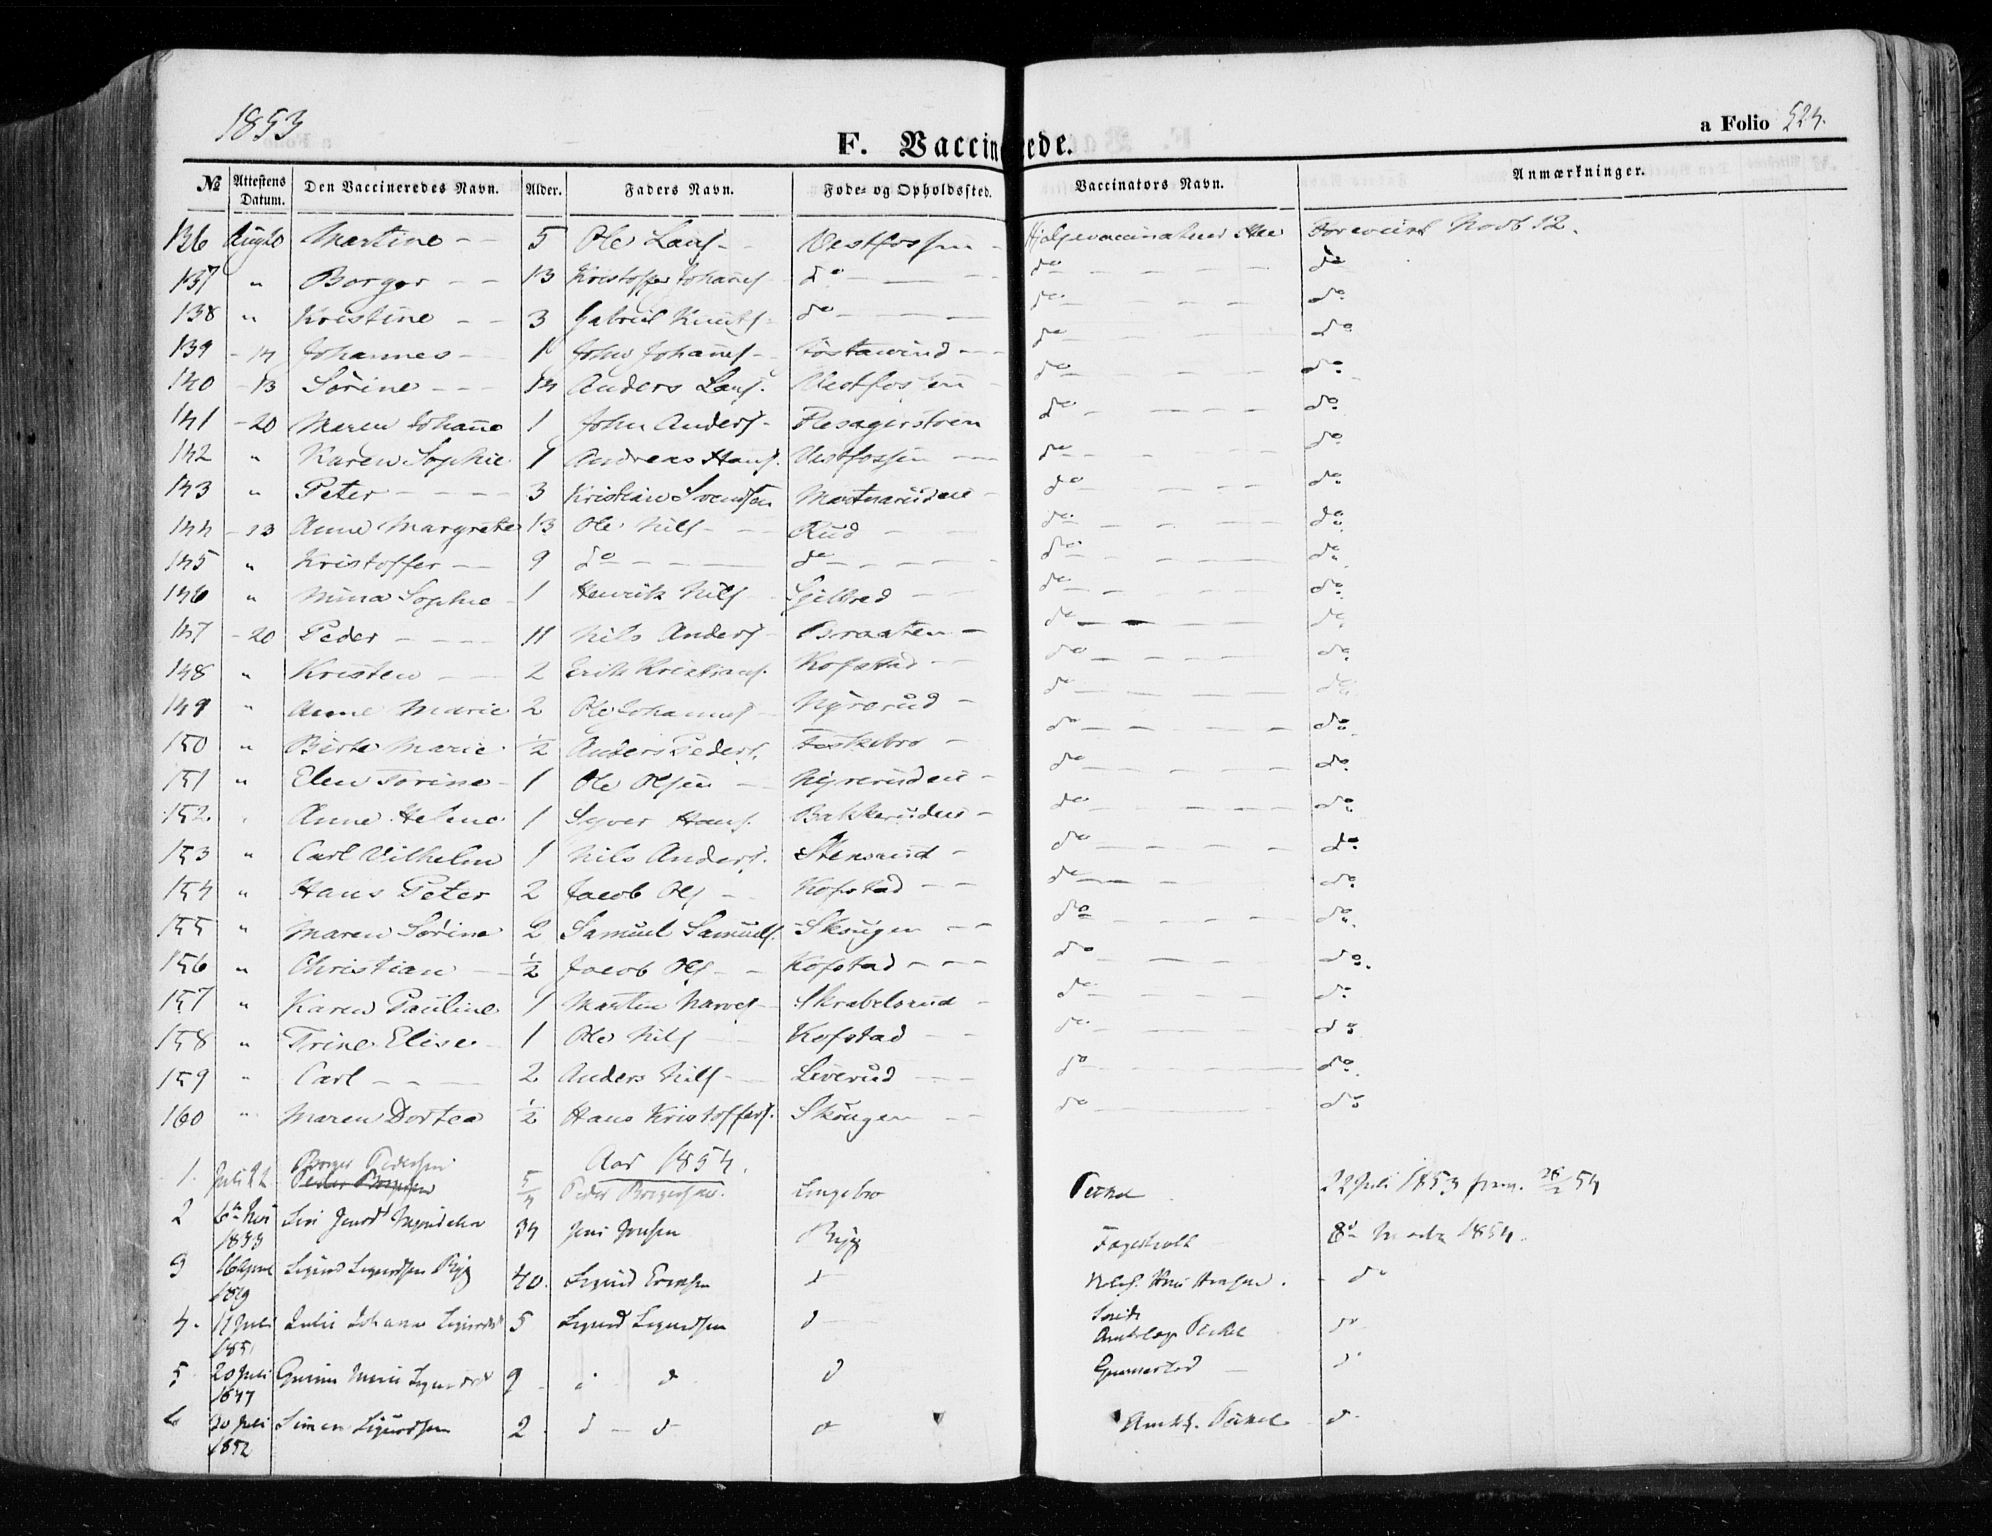 1853
F. Vaccinerede.
a Folio 524.
№ Attestens Datum. Den Vaccineredes Navn. Alder. Faders Navn. Føde- og Opholdssted. Vaccinators Navn. Anmærkninger.
136 Aug 20 Martine 5 Ole Lars Vestfossen Hjælpevaccinateur Foreviist Novb 12.
137 " Borger 13 Kristoffer Johannes do do do
138 " Kristine 3 Gabriel Knuts do do do
139 Johannes John Johannes do do
140 - 13 Sørine 14 Anders Lars. Vestfossen do do
141 - 20 Maren Johanne 1 John Anders do do
142 " Karen Sophie 1 Andreas Hans. Vestfossen do do
143 " Peter 3 Kristian Svendsen do do
144 - 13 Anne Margrete 13 Ole Nils Rud do do
145 " Kristoffer 9 do do do do
146 " Mina Sophie 1 Henrik Nils do do
147 - 20 Peder 11 Nils Anders Braaten do do
148 " Kristen 2 Erik Kristians. Kofstad do do
149 " Anne Marie 2 Ole Johannes Nyrerud do do
150 " Birte Marie ½ Anders Peders. do do
151 " Elen Torine 1 Ole Olsen Nyreruden do do
152 " Anne Helene 1 Syver Hans. Bakkeruden do do
153 " Carl Vilhelm 1 Nils Anders. Stensrud do do
154 " Hans Peter 2 Jacob Ols Kofstad do do
155 " Maren Sørine 2 Samuel Samuels. Skougen do do
156 " Christian ½ Jacob Ols Kofstad do do
157 " Karen Pauline 1 Martin Narves Skrabelsrud do do
158 " Trine Elise 1 Ole Nils Kofstad do do
159 " Carl 2 Anders Nils Leverud do do
160 " Maren Dortea ½ Hans Kristoffers. Skougen do do
Aar 1854.
1. Juli 22 Borger Pedersen 5/4 Peder Borgersen. Lingebro 22 Juli 1853
2 1833 Siri 34 Jens Jensen Ryg Fagerholt 1854.
3 1819 Sigurd Sigurdsen Ryg 40. Sigurd do do
4. 17 Juli 1851 Julie Johanne 5 Sigurd Sigurdsen do do
5 20 Juli 1847 9 do do Gunnestad do
6 20 Juli 1852 Simen Sigurdsen 2 do do do do